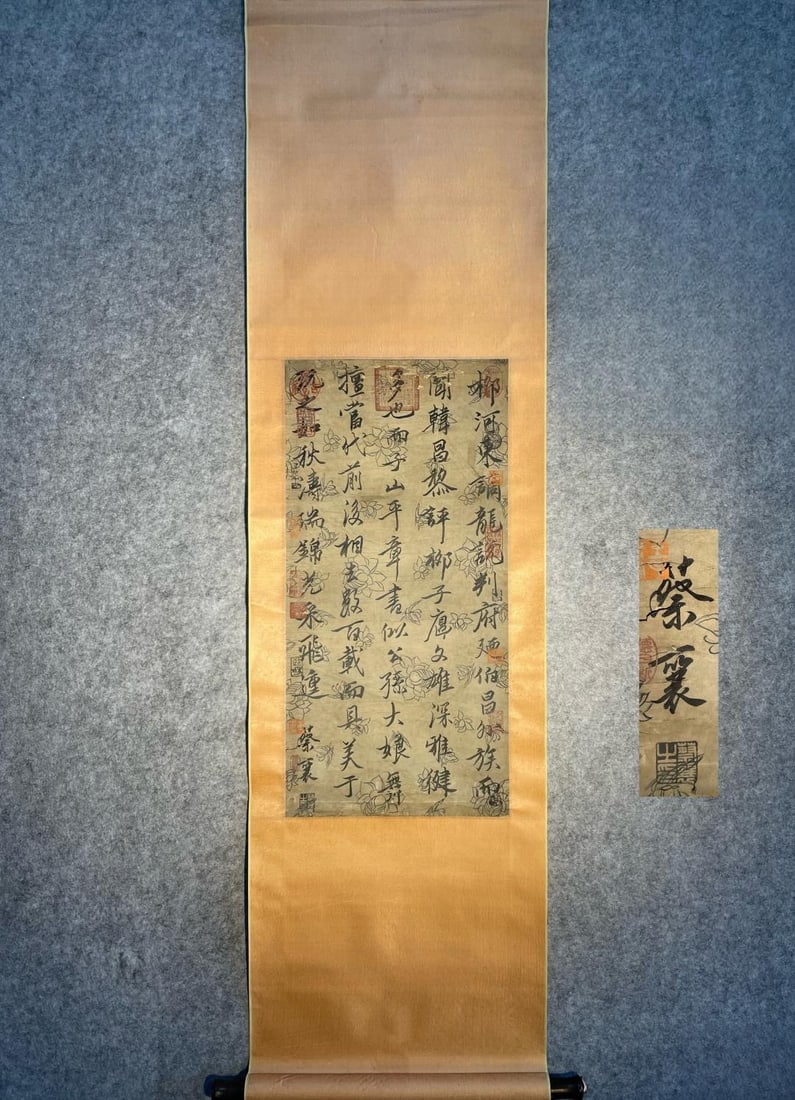 柳河東龍府伯昌族而
聞韓昌黎評柳子厚文雄深雅健
也而子山平章書似公孫大娘
擅當代前後相去數百載而具美于
玩之如秋濤瑞錦光采飛連 蔡襄
蔡襄